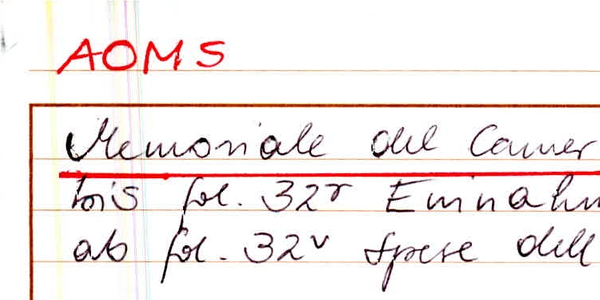 AOMS
Memoriale del Camer
bis fol. 32r Einnahm
ab fol. 32v Spese dell